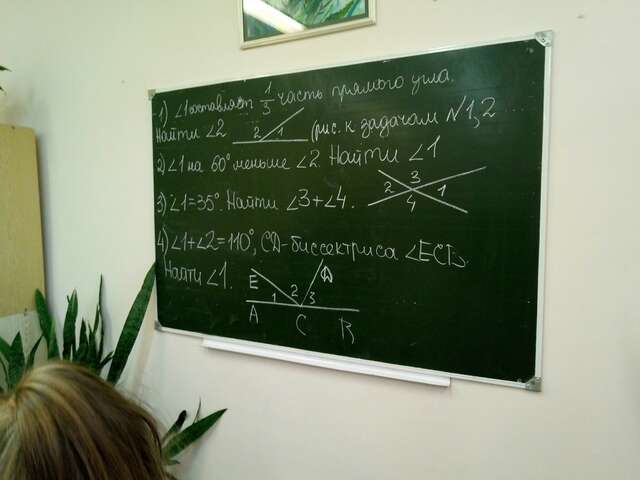 1) ∠1 составляет 1/3 часть прямого угла.
Найти ∠2 2 1 (рис. к задачам №1,2
2) ∠1 на 60° меньше ∠2. Найти ∠1
3) ∠1=35°. Найти ∠3+∠4. 2 3 1 4
4) ∠1+∠2=110°, CД-биссектриса ∠ECB.
Найти ∠1. E 1 2 3 Д
A C B